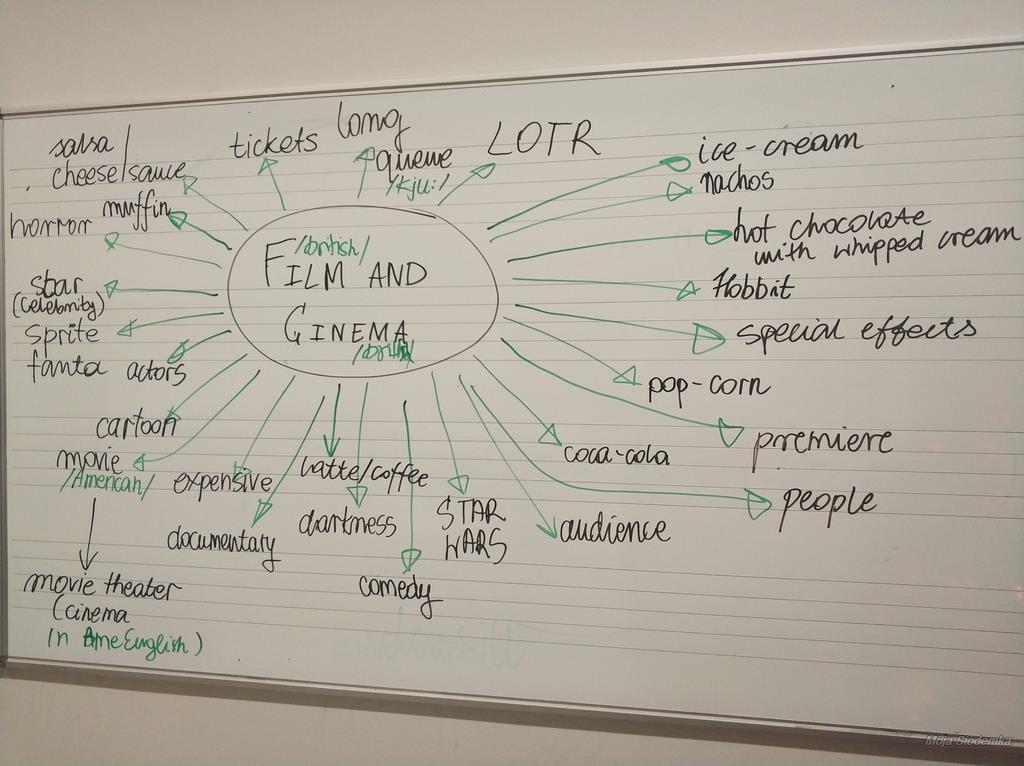 salsa/
cheese/sauce
tickets
long
queue
/kju:/
LOTR
ice-cream
nachos
muffin
horror
/british/
FILM AND
CINEMA
hot chocolate
with whipped cream
star
(celebrity)
Hobbit
sprite
special effects
fanta
actors
pop-corn
cartoon
premiere
movie
/American/
expensive
Latte/coffee
coca-cola
people
documentary
darkness
STAR
WARS
audience
movie theater
(cinema
in AmeEnglish)
comedy
Moja Siódemka